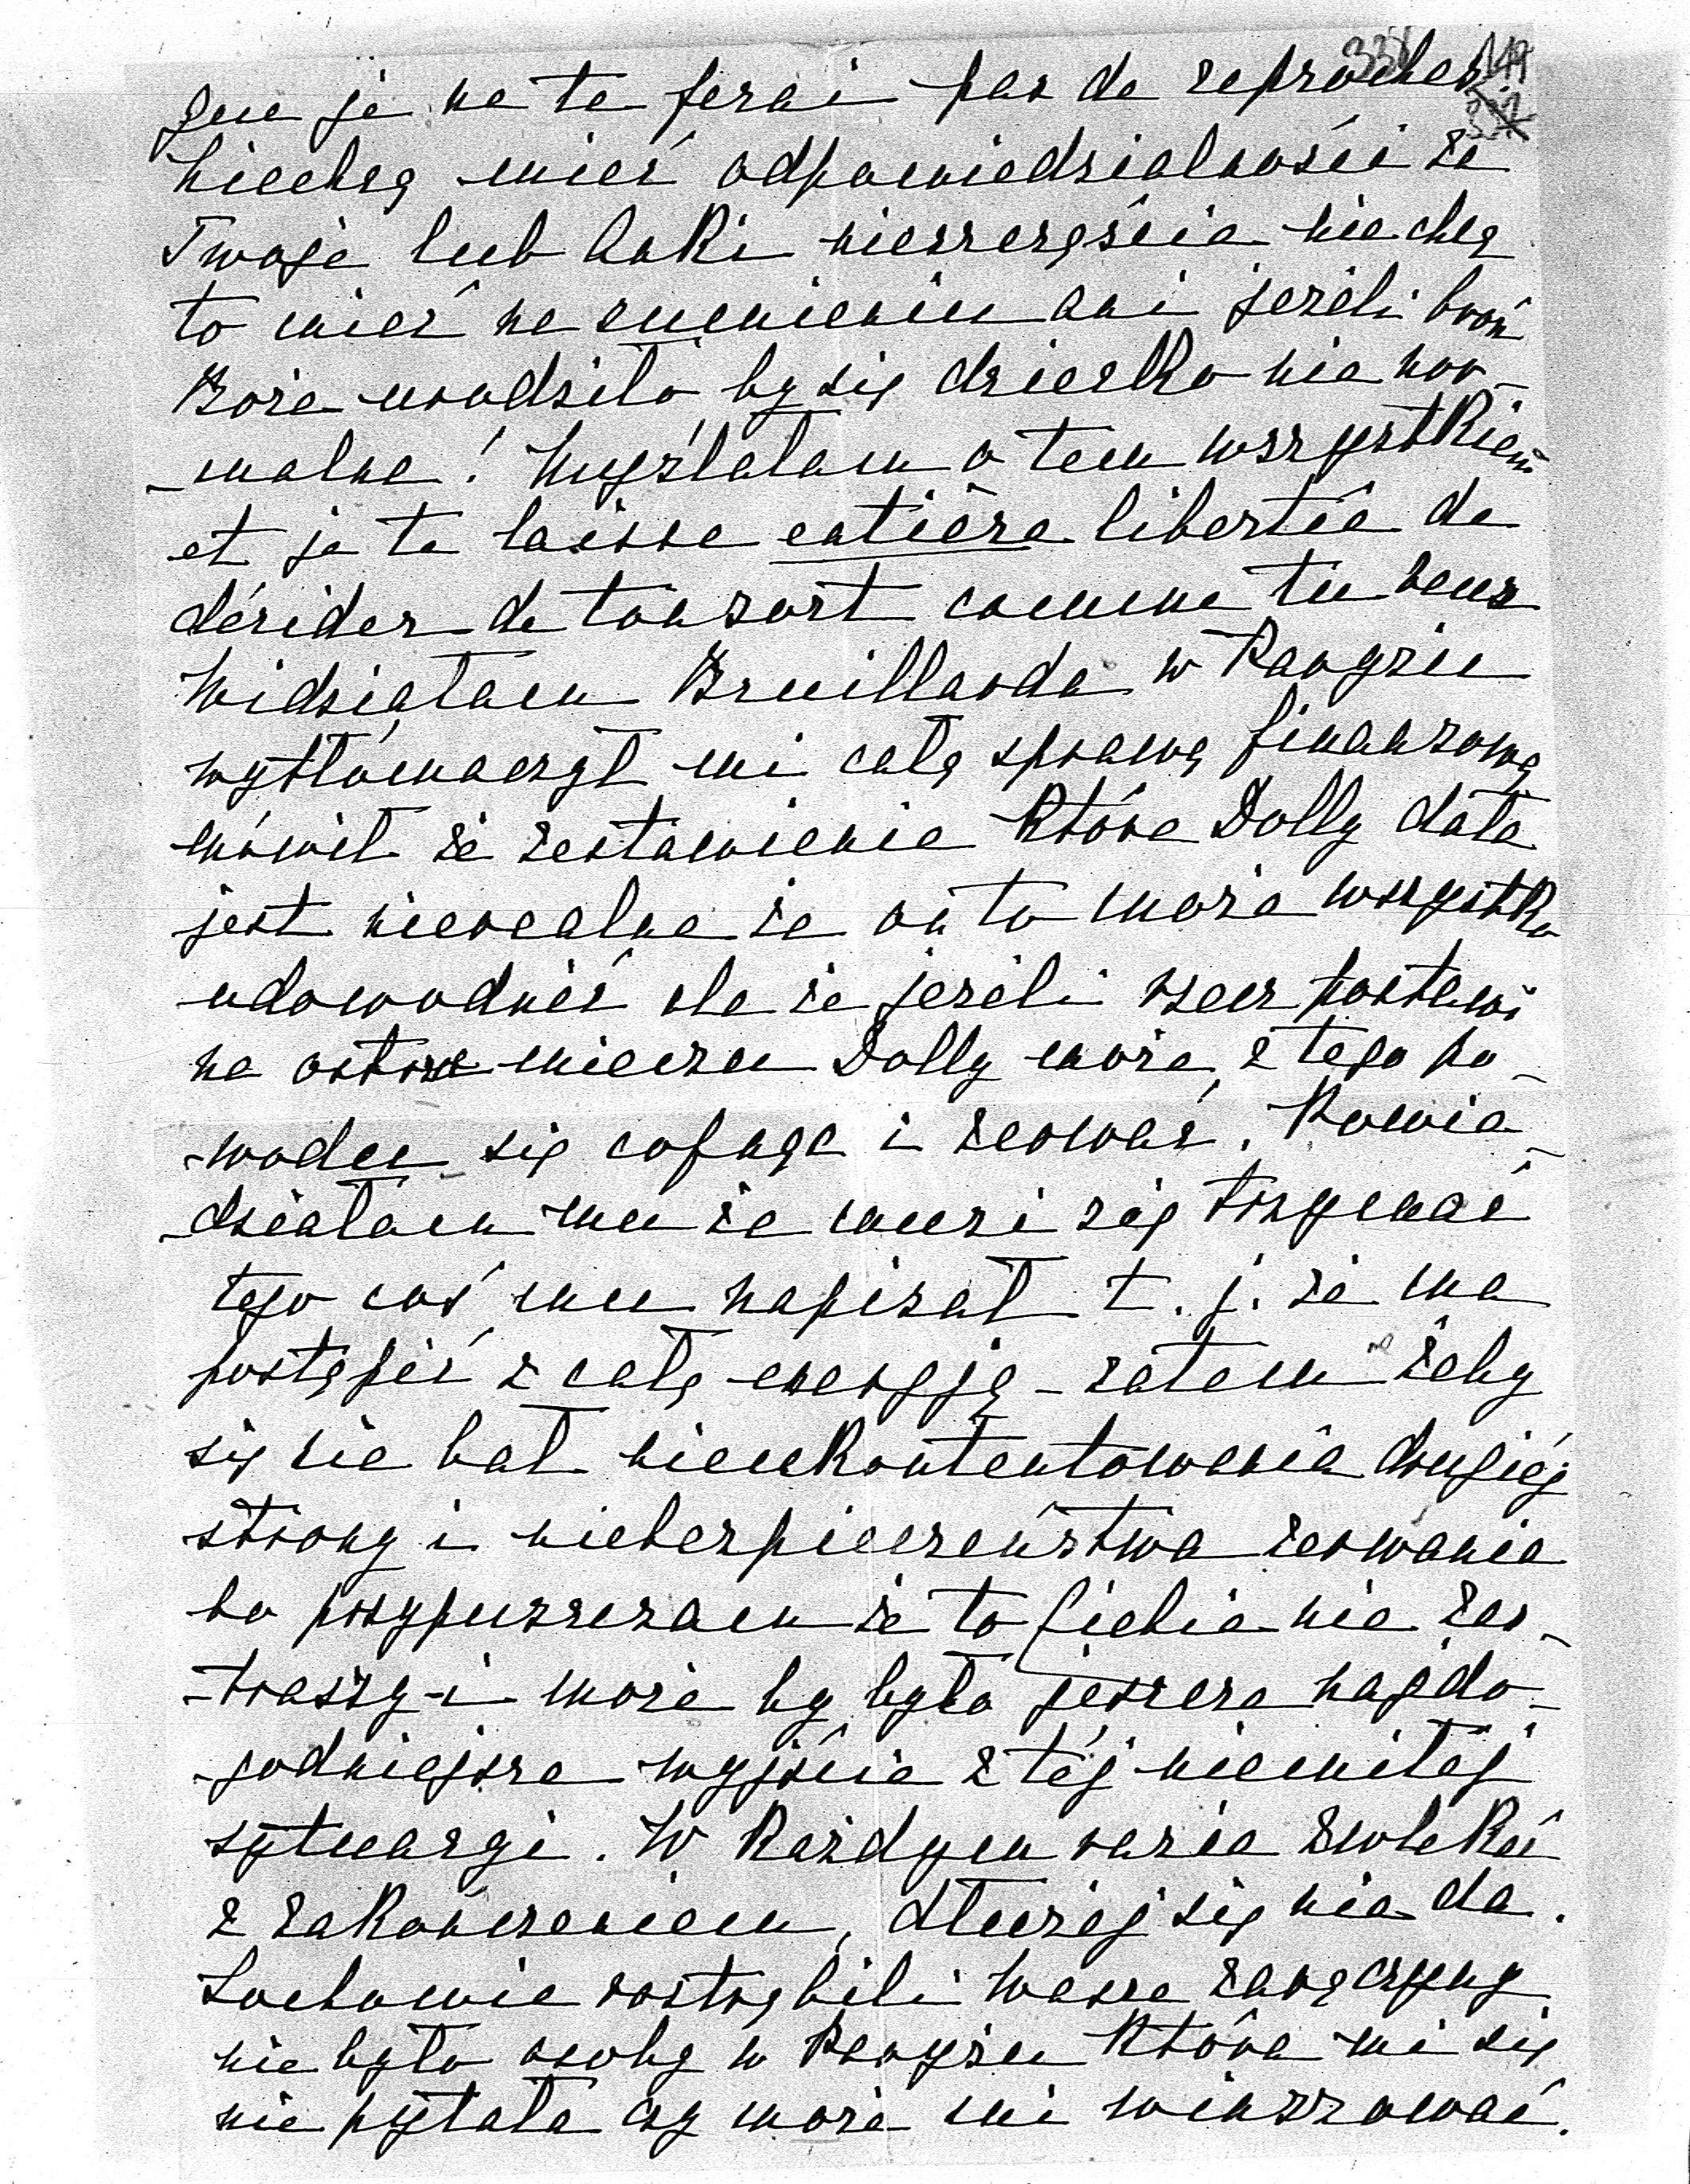 338 149
332
que je ne te ferai pas de reproches.
Niechcę mieć odpowiedzialności że
Twoje lub Anki nieszczęście nie chcę
to mieć na sumieniu ani jeżeli broń
Boże urodziło by się dziecko nie nor-
-malne! Myślałam o tem wszystkiem
et je te laisse entière liberté de
décider de ton sort comme tu veux
Widziałam Bruillarda w Paryżu
wytłómaczył mi całą sprawę finansową
mówił że zestawienie które Dolly dała
jest nierealne że on to może wszystko
udowodnić ale że jeżeli rzecz postawi
na ostrze miecza Dolly może z tego po-
-wodu się cofnąć i zerwać. Powie-
-działam mu że musi się trzymać
tego coś mu napisał t. j. że ma
postąpić z całą energją - zatem żeby
się nie bał nieukontentowania drugiej
strony i niebezpieczeństwa zerwania
bo przypuszczam że to Ciebie nie zas-
-traszy i może by było jeszcze najdo-
-godniejsze wyjście z tej niemiłej
sytuacyi. W każdym razie zwlekać
z zakończeniem, dłużej się nie da.
roztrąbili Wasze zaręczyny
nie było osoby w Paryżu która mi się
nie pytała czy może mi winszować.